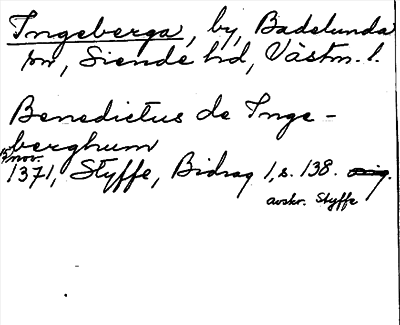 Ingeberga, by, Badelunda
sn, Siende hd, Västm. l.
Benedictus de Inge-
berghum
13 nov.
1371, Styffe, Bidrag 1, s. 138. orig.
avskr. Styffe